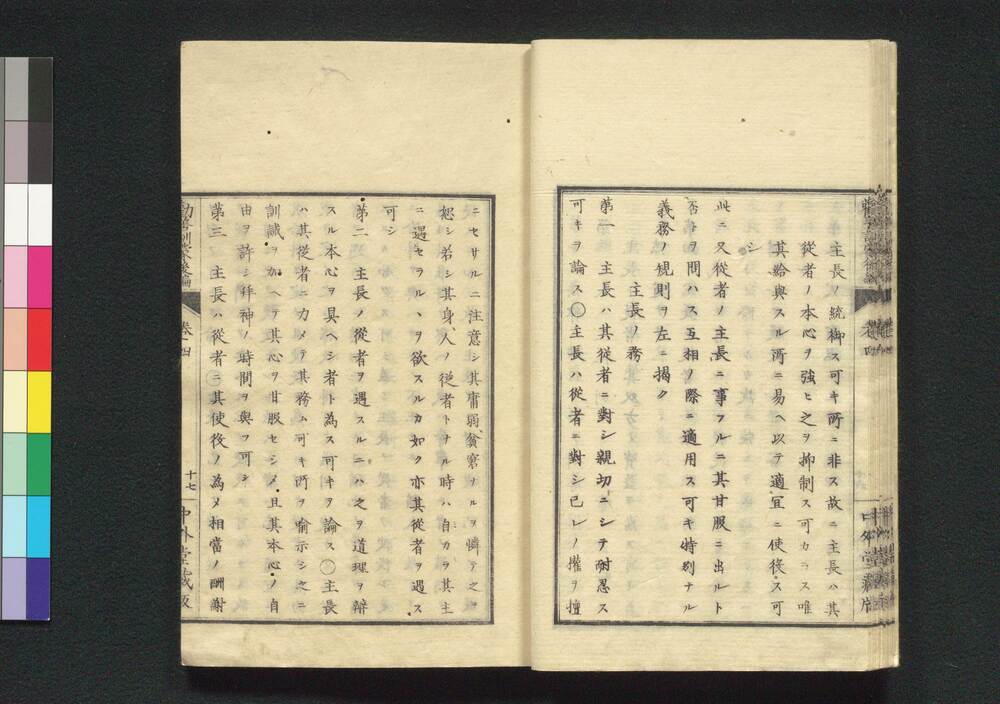 主長ノ統御ス可キ所ニ非ス故ニ主長ハ其
從者ノ本心ヲ強ヒ之ヲ抑制ス可カラス唯
其給與スル所ニ易ヘ以テ適冝ニ使役ス可
シ
此ニ又從者ノ主長ニ事フルニ其甘服ニ出ルト
否トヲ問ハス互相ノ際ニ適用ス可キ特別ナル
義務ノ規則ヲ左ニ揭ク
主長ノ務
苐一 主長ハ其從者ニ對シ親切ニシテ耐忍ス
可キヲ論ス〇主長ハ從者ニ對シ己レノ權ヲ擅
ニセサルニ注意シ其庸弱貧窮ナルヲ憐テ之ヲ
恕シ若シ其身人ノ從者トナル時ハ自カラ其主
ニ遇セラルヽヲ欲スルカ如ク亦其從者ヲ遇ス
可シ
苐二 主長ノ從者ヲ遇スルニハ之ヲ道理ヲ辯
スル本心ヲ具ヘシ者ト為ス可キヲ論ス〇主長
ハ其從者ニ力メテ其務ム可キ所ヲ喩示シ之ニ
訓誡ヲ加ヘテ其心ヲ甘服セシメ且其本心ノ自
由ヲ許シ拜神ノ時間ヲ與フ可シ
苐三 主長ハ從者ニ其使役ノ為メ相當ノ酬謝
卷四
十七
中外堂藏版